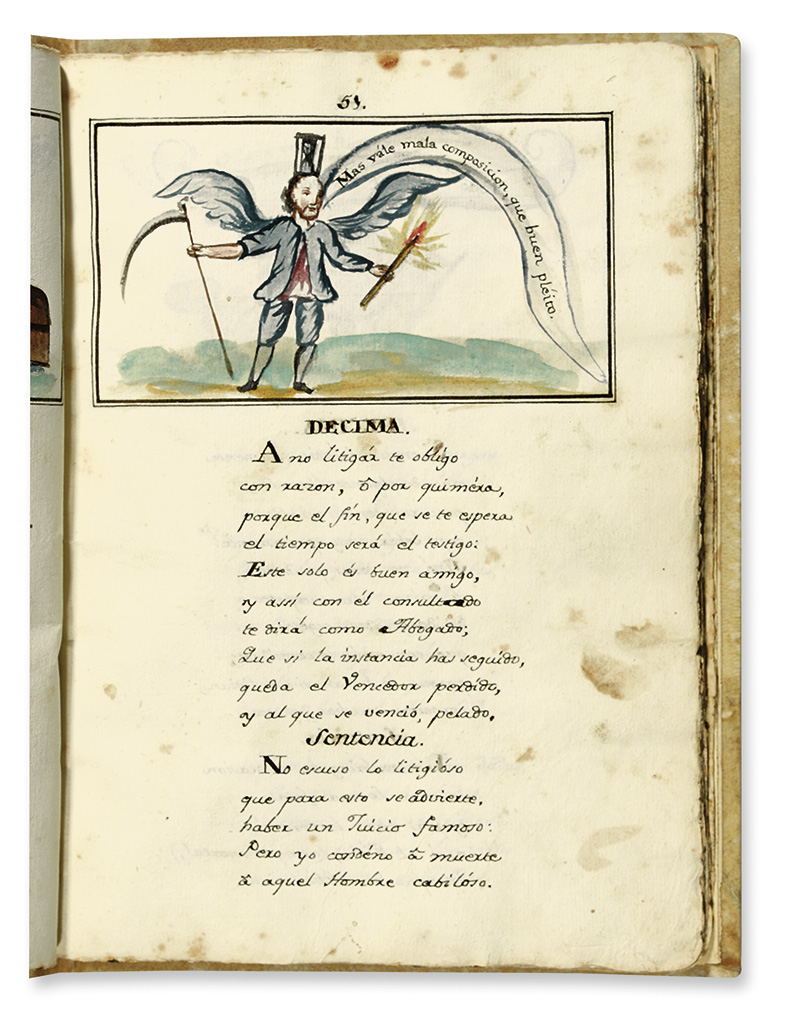 58.
Mas vále mala composicion, que buen pléito.
DECIMA.
A no litigár te oblígo
con razon, ô por quiméra,
porque el fín, que se te espera
el tiempo será el testígo:
Este solo és buen amígo,
y assí con él consultado
te dirá como Abogado;
Que si la instancia has seguído,
queda el Vencedor perdído,
y al que se venció, pelado.
Sentencia.
No escuso lo litigióso
que para esto se advierte,
haber un Juicio famoso:
Pero yo condéno â muerte
â aquel Hombre cabilóso.